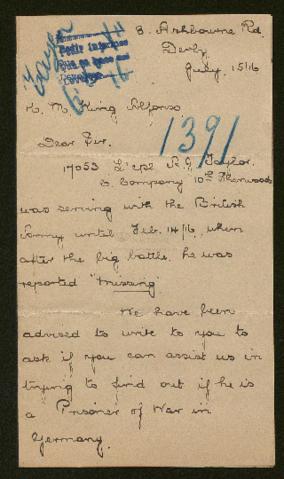 8. Ashbourne Rd
Derby
July 15/16
H. M. King Alfonso
1391
Dear Sir.
17053 L'cpl A. G. Taylor.
C. Company 10th Sherwoods
was serving with the British
Army until Feb. 14/16, when
after the big battle he was
reported "missing"
We have been
advised to write to you to
ask if you can assist us in
trying to find out if he is
a "Prisoner of War in
Germany.